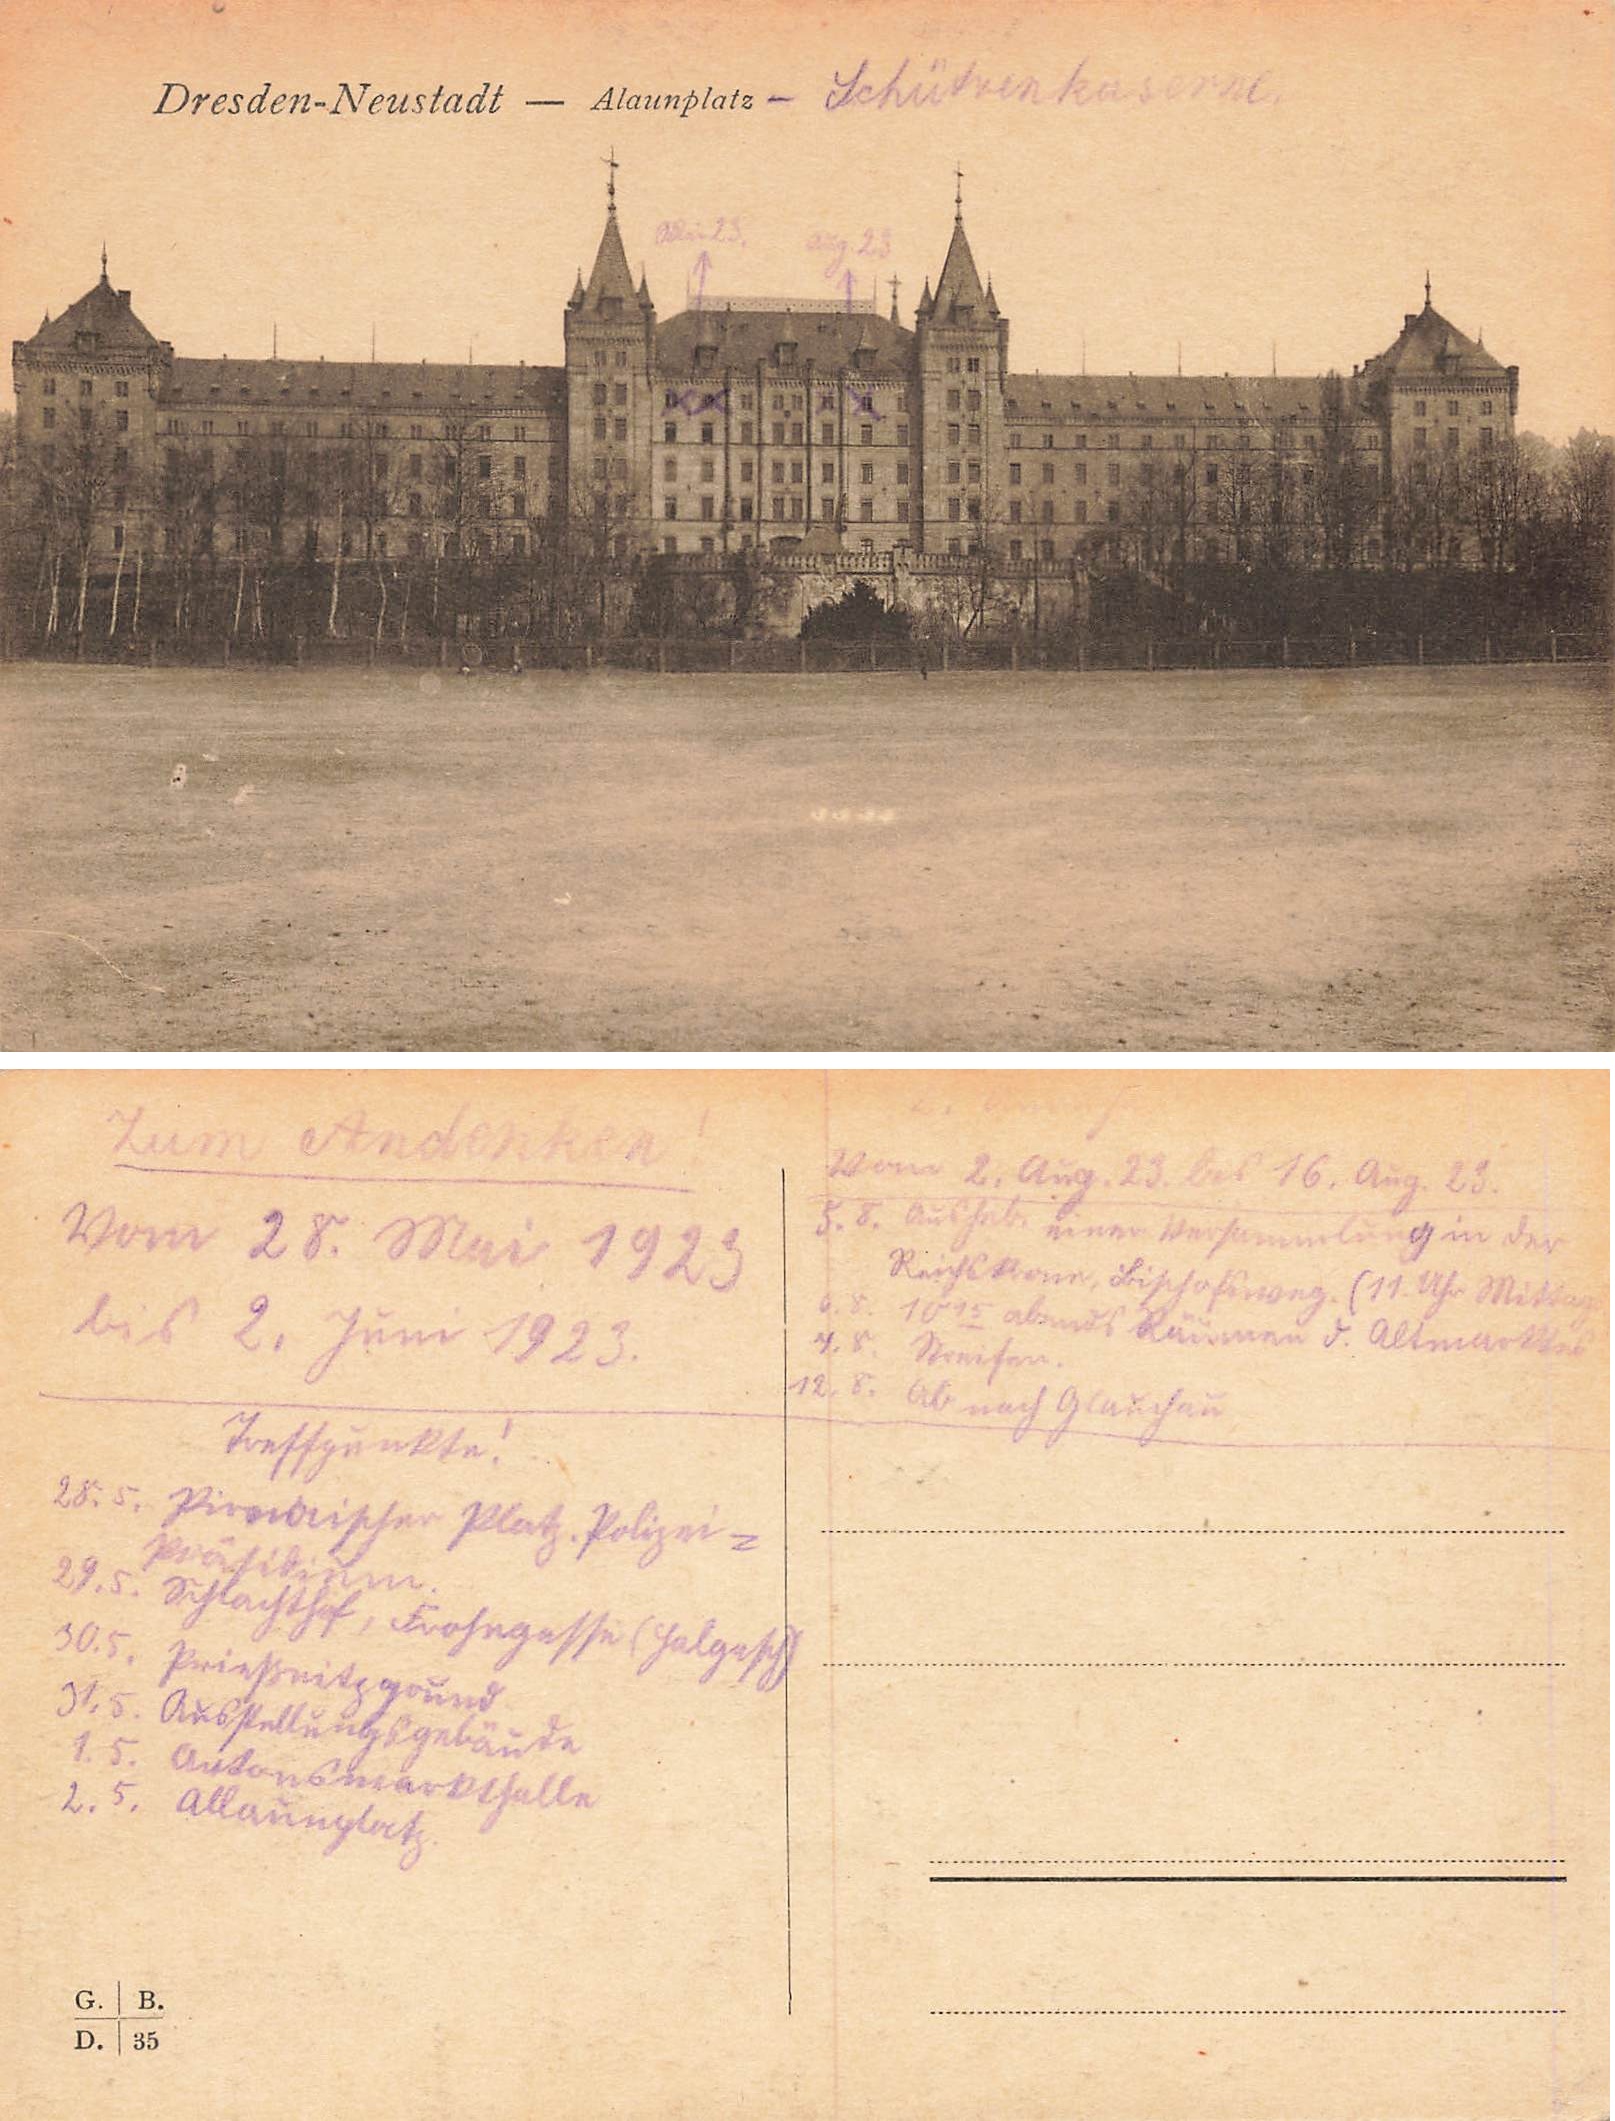 Dresden-Neustadt — Alaunplatz - Schützenkaserne.
Mai 23. Aug. 23
Zum Andenken!
Vom 28. Mai 1923
bis 2. Juni 1923.
Treffpunkte!
28. 5. Pirnaischer Platz. Polizei=
präsidium.
29. 5. Schlachthof, Frohngasse
30. 5. Prießnitzgrund
31. 5. Ausstellungsgebäude
1. 5. Antonsmarkthalle
2. 5. Allaunplatz.
G. B.
D. 35
Vom 2. Aug. 23. bis 16. Aug. 23.
5. 8. Aushab. einer Versammlung in der
Reichskrone, Bischofsweg. (11. Uhr Mittag
6. 8. 10 15 abends Räumen d. Altmarktes
7. 8. Streifen.
12. 8. Ab nach Glauchau